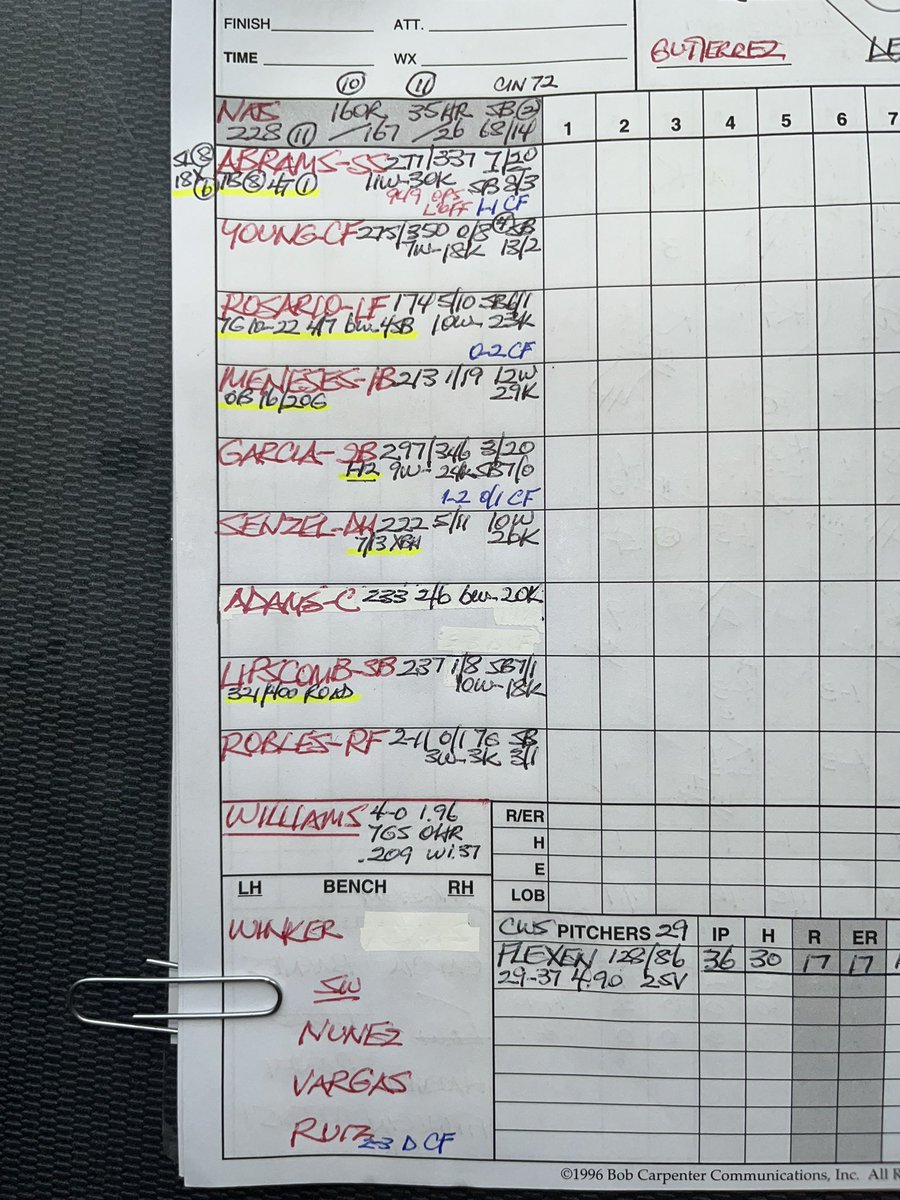 FINISH ATT.
TIME WX
GUTIERREZ LE
10 11 CIN 72
NATS 160R 35HR SB(2)
228 11 /167 /26 68/14
1 2 3 4 5 6 7
ABRAMS-SS 277/337 7/20
18X 6 TB 8 11W-30K SB 8/3
949 OPS
L'OFF 1-1 CF
YOUNG-CF 275/350 0/8 4 SB
7W-18K 13/2
ROSARIO-LF 174 5/10 SB6/1
7G 10-22 4/7 bw-4SB 10W-23K
0-2 CF
MENESES-1B 213 1/19 12W
OB 16/20G 29K
GARCIA-2B 297/346 3/20
H2 9W-24K SB7/0
1-2 0/1 CF
SENZEL-DH 222 5/11 10W
7/3 XBH 26K
ADAMS-C 233 2/6 6W-20K
LIPSCOMB-3B 237 1/8 SB7/1
321/400 ROAD 10W-18K
ROBLES-RF 2-11 0/1 7G SB
3W-3K 3/1
WILLIAMS 4-0 1.96
7GS 0HR
.209 W1.37
R/ER
H
E
LOB
LH BENCH RH
WINKER
SW
NUNEZ
VARGAS
RUIZ 2-3 D CF
CWS PITCHERS 29 IP H R ER
FLEXEN 128/86 36 30 17 17
29-37 4.90 2SV
©1996 Bob Carpenter Communications, Inc. All R